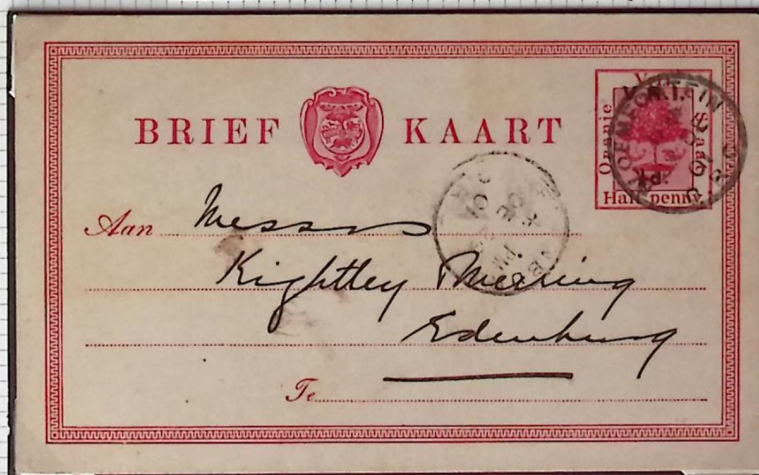 BRIEF KAART
Oranje Vrij Staat
V.R.I.
Half penny
BLOEMFONTEIN
Aan Messrs
Kightley Meering
Edenburg
Te